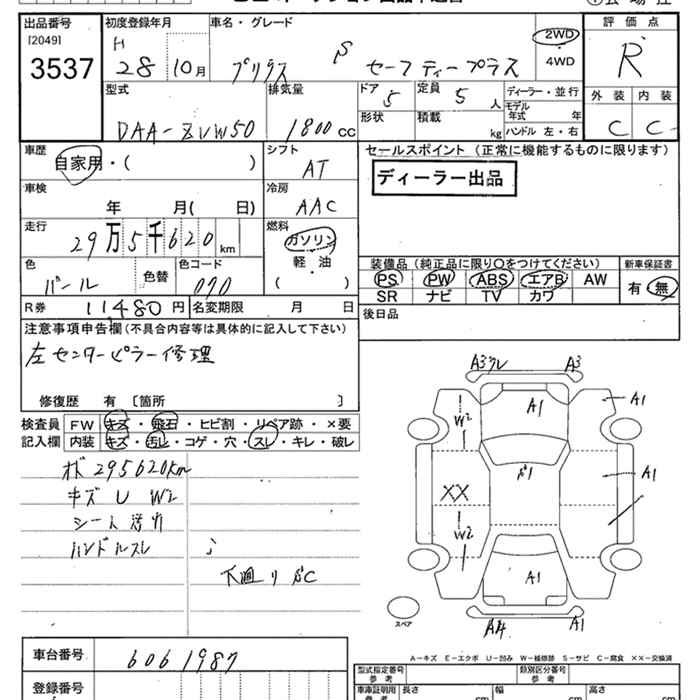 出品番号
[2049]
3537
初度登録年月
H
28 10月
車名・グレード
プリウス S セーフティープラス
2WD
4WD
評価点
R
外装 内装
C C
型式
DAA-ZVW50
排気量
1800cc
ドア
5
定員
5人
形状
積載
kg
ディーラー・並行
モデル
年式 年
ハンドル 左・右
車歴
自家用・( )
シフト
AT
車検
年 月( 日)
冷房
AAC
走行
29万5千620km
燃料
ガソリン
軽・油
( )
色
パール
色替
色コード
070
R券 11480円
名変期限 月 日
セールスポイント(正常に機能するものに限ります)
ディーラー出品
装備品(純正品に限り○をつけてください)
PS PW ABS エアB AW
SR ナビ TV カワ
新車保証書
有・無
後日品
注意事項申告欄(不具合内容等は具体的に記入して下さい)
左センターピラー修理
修復歴 有〔箇所 〕
検査員
記入欄
FW キズ・飛石・ヒビ割・リペア跡・×要
内装 キズ・汚レ・コゲ・穴・スレ・キレ・破レ
295620km
キズ U W2
シート
ハンドルスレ
下廻り
A3 A3
A1
A1
W2
A1
XX
W2
A1
A4 A1
スペア
A-キズ E-エクボ U-凹み W-補修跡 S-サビ C-腐食 ××-交換済
車台番号
6061987
登録番号
型式指定番号
参考
類別区分番号
参考
車庫証明用
参考
長さ cm
幅 cm
高さ cm